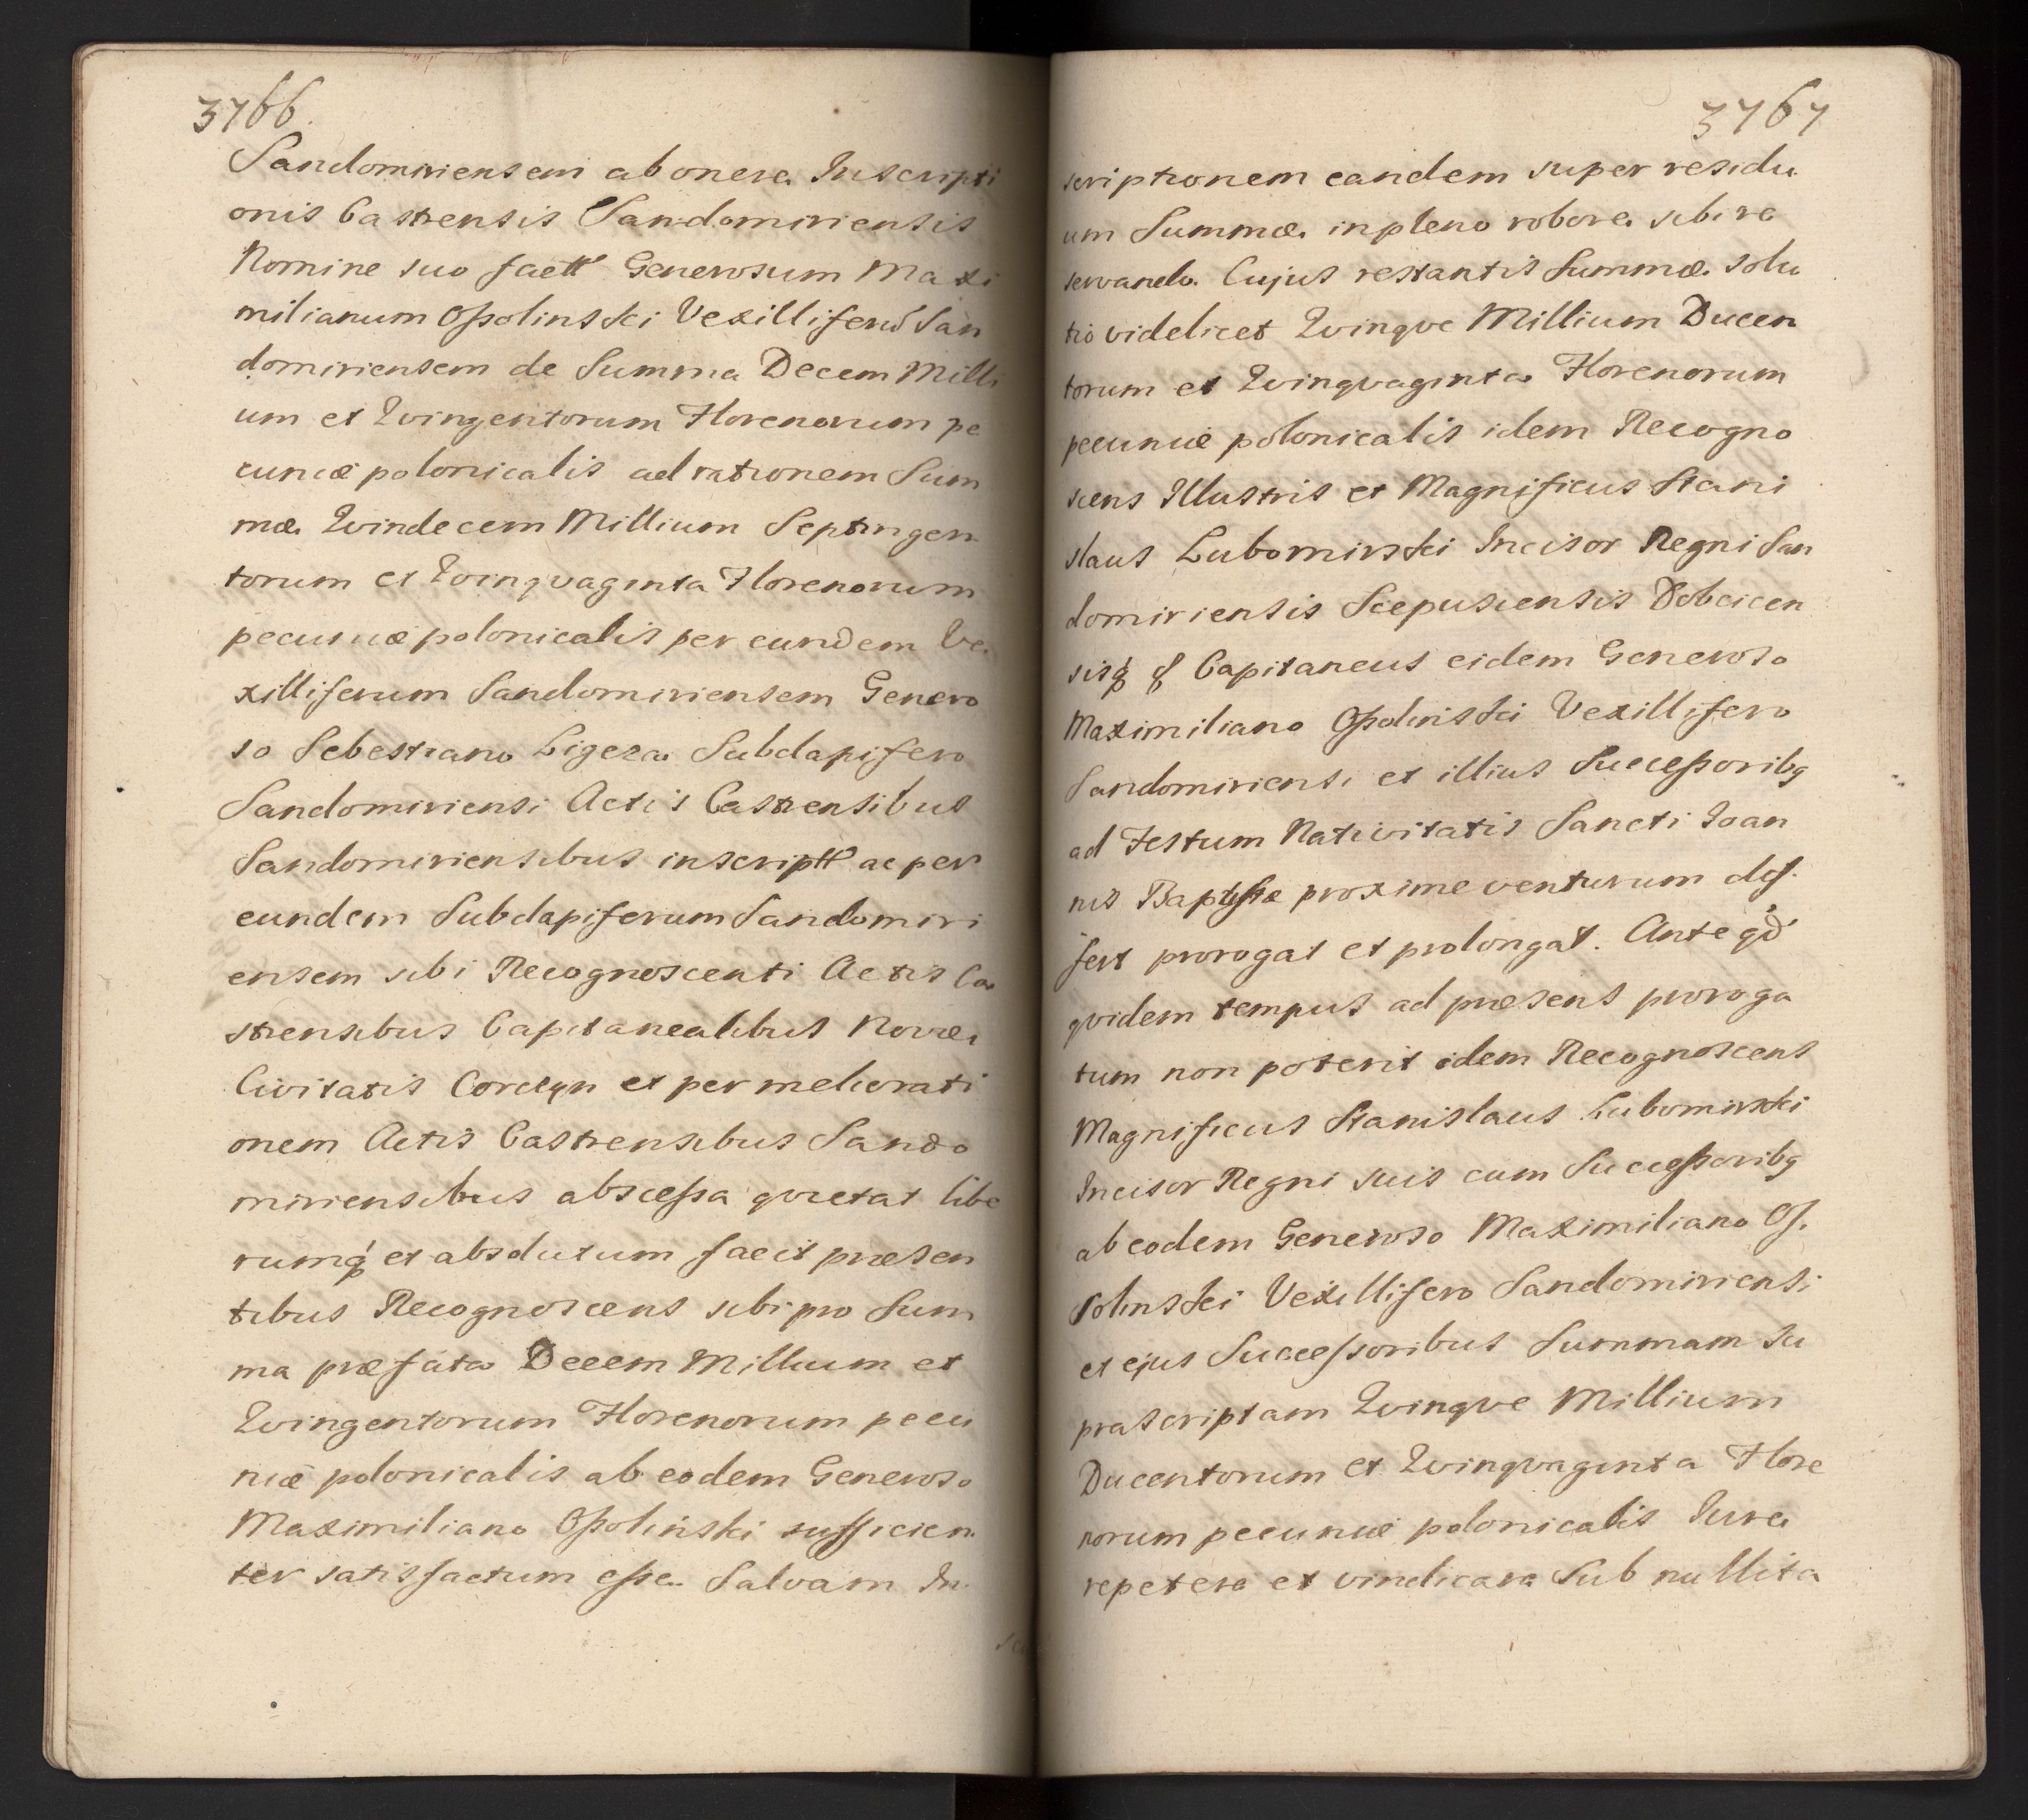 3766.
Sandomiriensem ab onere Inscripti
onis Castrensis Sandomiriensis
Nomine suo factt Generosum Maxi
milianum Ossolinski Vexilliferū San
domiriensem de Summa Decem Milli
um et Qvingentorum Florenorum pe
cuniæ polonicalis ad rationem Sum
mæ Qvindecem Millium Septingen
torum et Qvinqvaginta Florenorum
pecuniæ polonicalis per eundem Ve
xilliferum Sandomiriensem Genero
so Sebestiano Ligeza Subdapifero
Sandomiriensi Actis Castrensibus
Sandomiriensibus inscriptt ac per
eundem Subdapiferum Sandomiri
ensem sibi Recognoscenti Actis Ca
strensibus Capitanealibus Novæ
Civitatis Corczyn et per meliorati
onem Actis Castrensibus Sando
miriensibus abscessa qvietat libe
rumq́ et absolutum facit præsen
tibus Recognoscens sibi pro Sum
ma præfata Decem Millium et
Qvingentorum Florenorum pecu
niæ polonicalis ab eodem Generoso
Maximiliano Ossoliński sufficien
ter satisfactum esse. Salvam In
3767
scriptionem eandem super residu
um Summæ in pleno robore sibi re
servando. Cujus restantis Summæ solu
tio videlicet Qvinqve Millium Ducen
torum et Qvinqvaginta Florenorum
pecuniæ polonicalis idem Recogno
scens Illustris et Magnificus Stani
slaus Lubomirski Incisor Regni San
domiriensis Scepusiensis Dobcicen
sisq́ & Capitaneus eidem Generoso
Maximiliano Ossoliński Vexillifero
Sandomiriensi et illius Successoribq
ad Festum Nativitatis Sancti Joan
nis Baptistæ proxime venturum dif.
fert prorogat et prolongat. Ante qd
qvidem tempus ad præsens proroga
tum non poterit idem Recognoscens
Magnificus Stanislaus Lubomirski
Incisor Regni suis cum Successoribq
ab eodem Generoso Maximiliano Os.
solinski Vexillifero Sandomiriensi
et ejus Successoribus Summam Su
prascriptam Qvinqve Millium
Ducentorum et Qvinqvaginta Flore
norum pecuniæ polonicalis Jure
repetere et vindicare Sub nullita